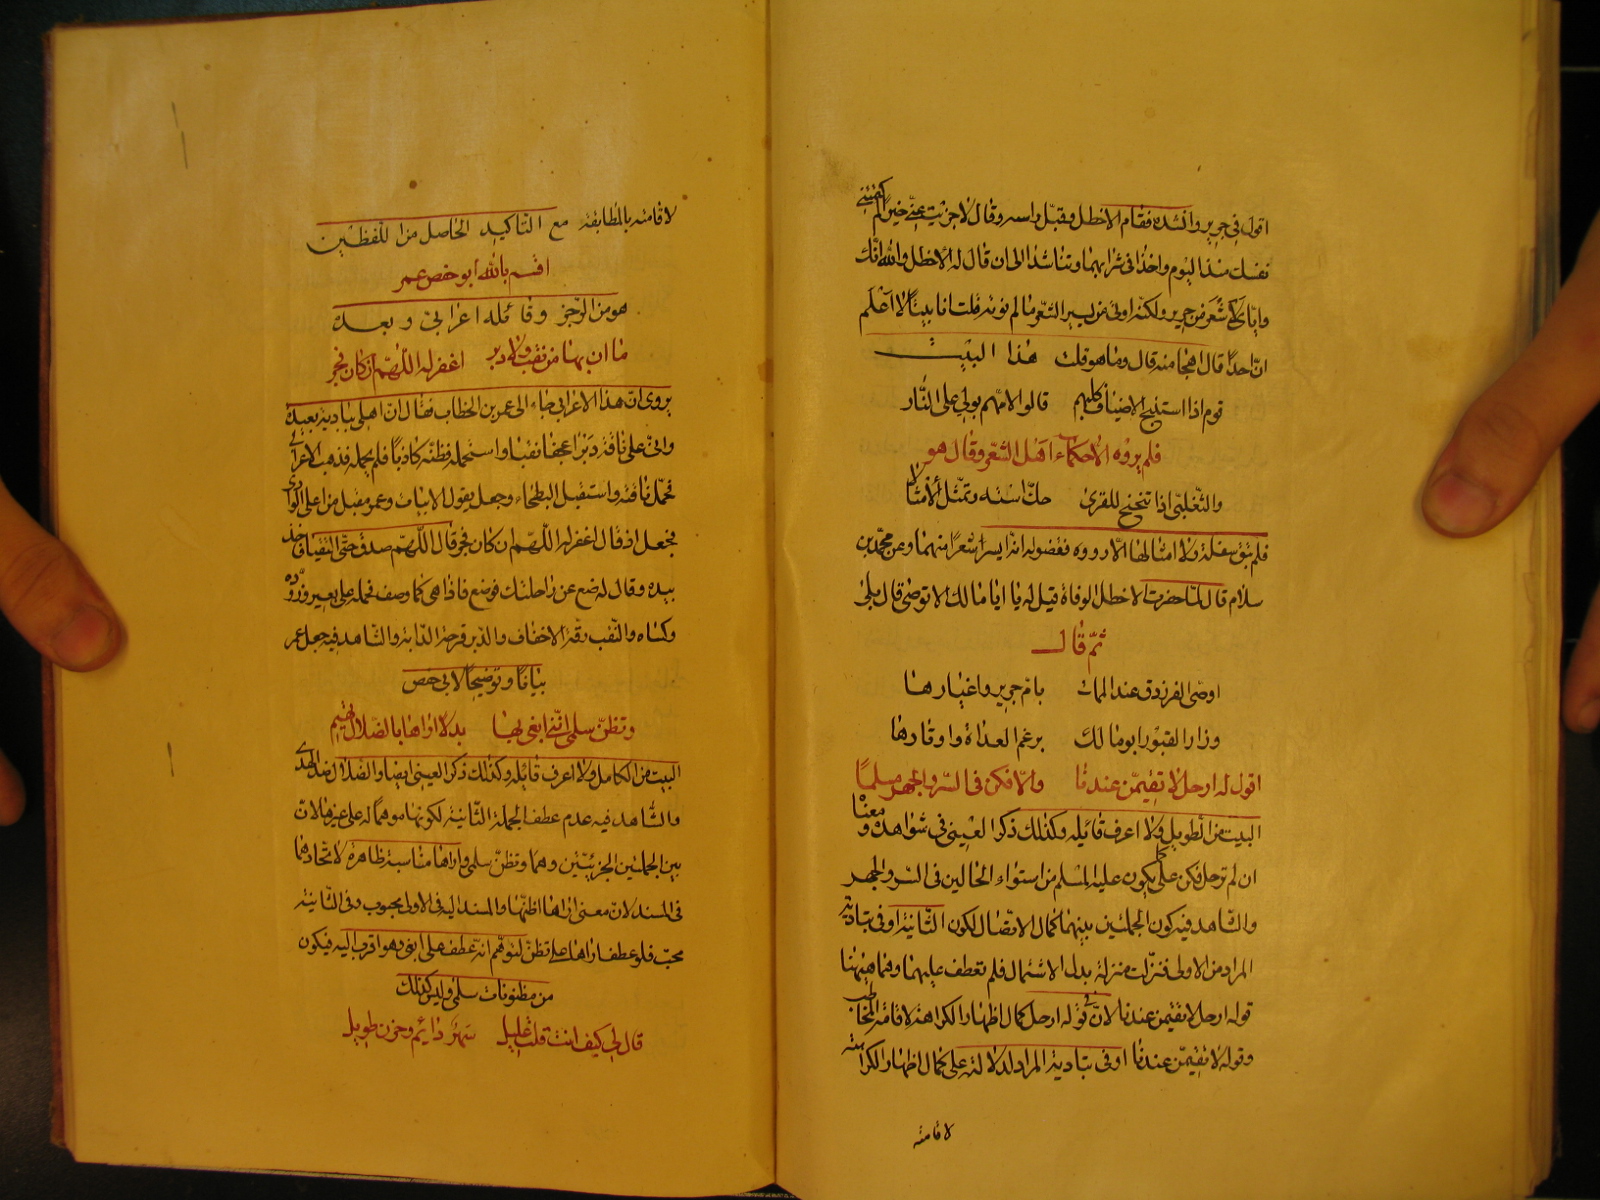 اقول في جرير وانشده فقام الاخطل وقبّل راسه وقال لا جزيت عني خيرا لم كتمتني
نفسك منذ اليوم واخذا في شرابهما وتناشدا الى ان قال له الاخطل والله انّك
وايّاي لاشعر من جرير ولكنه اوتي من سير الشعر ما لم نوته قلت انا بيتا لا اعلم
انّ احدا قال اهجا منه قال وما هو قلت هذا البيت
قوم اذا استنبح الاضياف كلبهم قالوا لامّهم بولي على النّار
فلم يروه الا حكماء اهل الشعر وقال هو
والتّغلبي اذا تنحنح للقرى حكّ استه وتمثّل الامثالا
فلم تبق سقاة ولا امثالها الّا رووه فقضوا له انه ايسر شعرا منهما وعن محمّد بن
سلام قال لمّا حضرت الاخطل الوفاة قيل له يا ابا مالك الا توصي قال بلى
ثمّ قال
اوصّي الفرزدق عند الممات بامّ جرير واعيارها
وزار القبور ابو مالك برغم العداة واوتارها
اقول له ارحل لا تقيمنّ عندنا والّا فكن في السّر والجهر مسلما
البيت من الطويل ولا اعرف قائله وكذلك ذكر العيني في شواهده ومعناه
ان لم ترحل فكن على ما يكون عليه المسلم من استواء الحالين في السّر والجهر
والشّاهد فيه كون الجملتين بينهما كمال الاتّصال لكون الثّانية اوفى بتادية
المراد من الاولى فنزّلت منزلة بدل الاشتمال فلم تعطف عليها وهما ههنا
قوله ارحل لا تقيمن عندنا لانّ في قوله ارحل كمال اظهار الكراهة لاقامة المخاطب
وقوله لا تقيمنّ عندنا اوفى بتادية المراد لدلالته على كمال اظهار الكراهة
لاقامته
لاقامته بالمطابقة مع التّاكيد الحاصل من اللفظين
اقسم بالله ابو حفص عمر
هو من الرّجز وقائله اعرابيّ وبعده
ما ان بها من نقب ولا دبر اغفر له اللّهمّ ان كان فجر
يروى ان هذا الاعرابي جاء الى عمر بن الخطاب فقال ان اهلي ببادية بعيدة
وانّي على ناقة دبراء عجفا نقبا واستحمله فظنّه كاذبا فلم يحمله فذهب الاعرابي
فحمّل ناقته واستقبل البطحاء وجعل يقول الابيات وعمر مقبل من اعلى الوادي
فجعل اذ قال اغفر له اللّهمّ ان كان فجر قال اللّهمّ صدق حتّى التقيا فاخذ
بيده وقال له ضع عن راحلتك فوضع فاذا هي كما وصف فحمله على بعير وزوّده
وكساه والنّقب رقّة الاخفاف والدّبر قرحة الدّابة والشّاهد فيه جعل عمر
بيانا وتوضيحا لابي حفص
وتظنّ سلمى انّني ابغي بها بدلا اراها بالضّلال تهيم
البيت من الكامل ولا اعرف قائله وكذلك ذكر العيني ايضا والضّلال ضد الهدى
والشّاهد فيه عدم عطف الجملة الثّانية لكونها موهما له على غيرها لانّ
بين الجملتين الخبريّتين وهما وتظنّ سلمى واراها مناسبة ظاهرة لاتّحادهما
في المسند لانّ معنى اراها اظنّها والمسند اليه في الاولى محبوب وفي الثّانية
محبّ فلو عطف اراها على تظنّ لتوهّم انه عطف على ابغي وهو اقرب اليه فيكون
من مظنونات سلمى وليس كذلك
قال لي كيف انت قلت عليل سهر دائم وحزن طويل